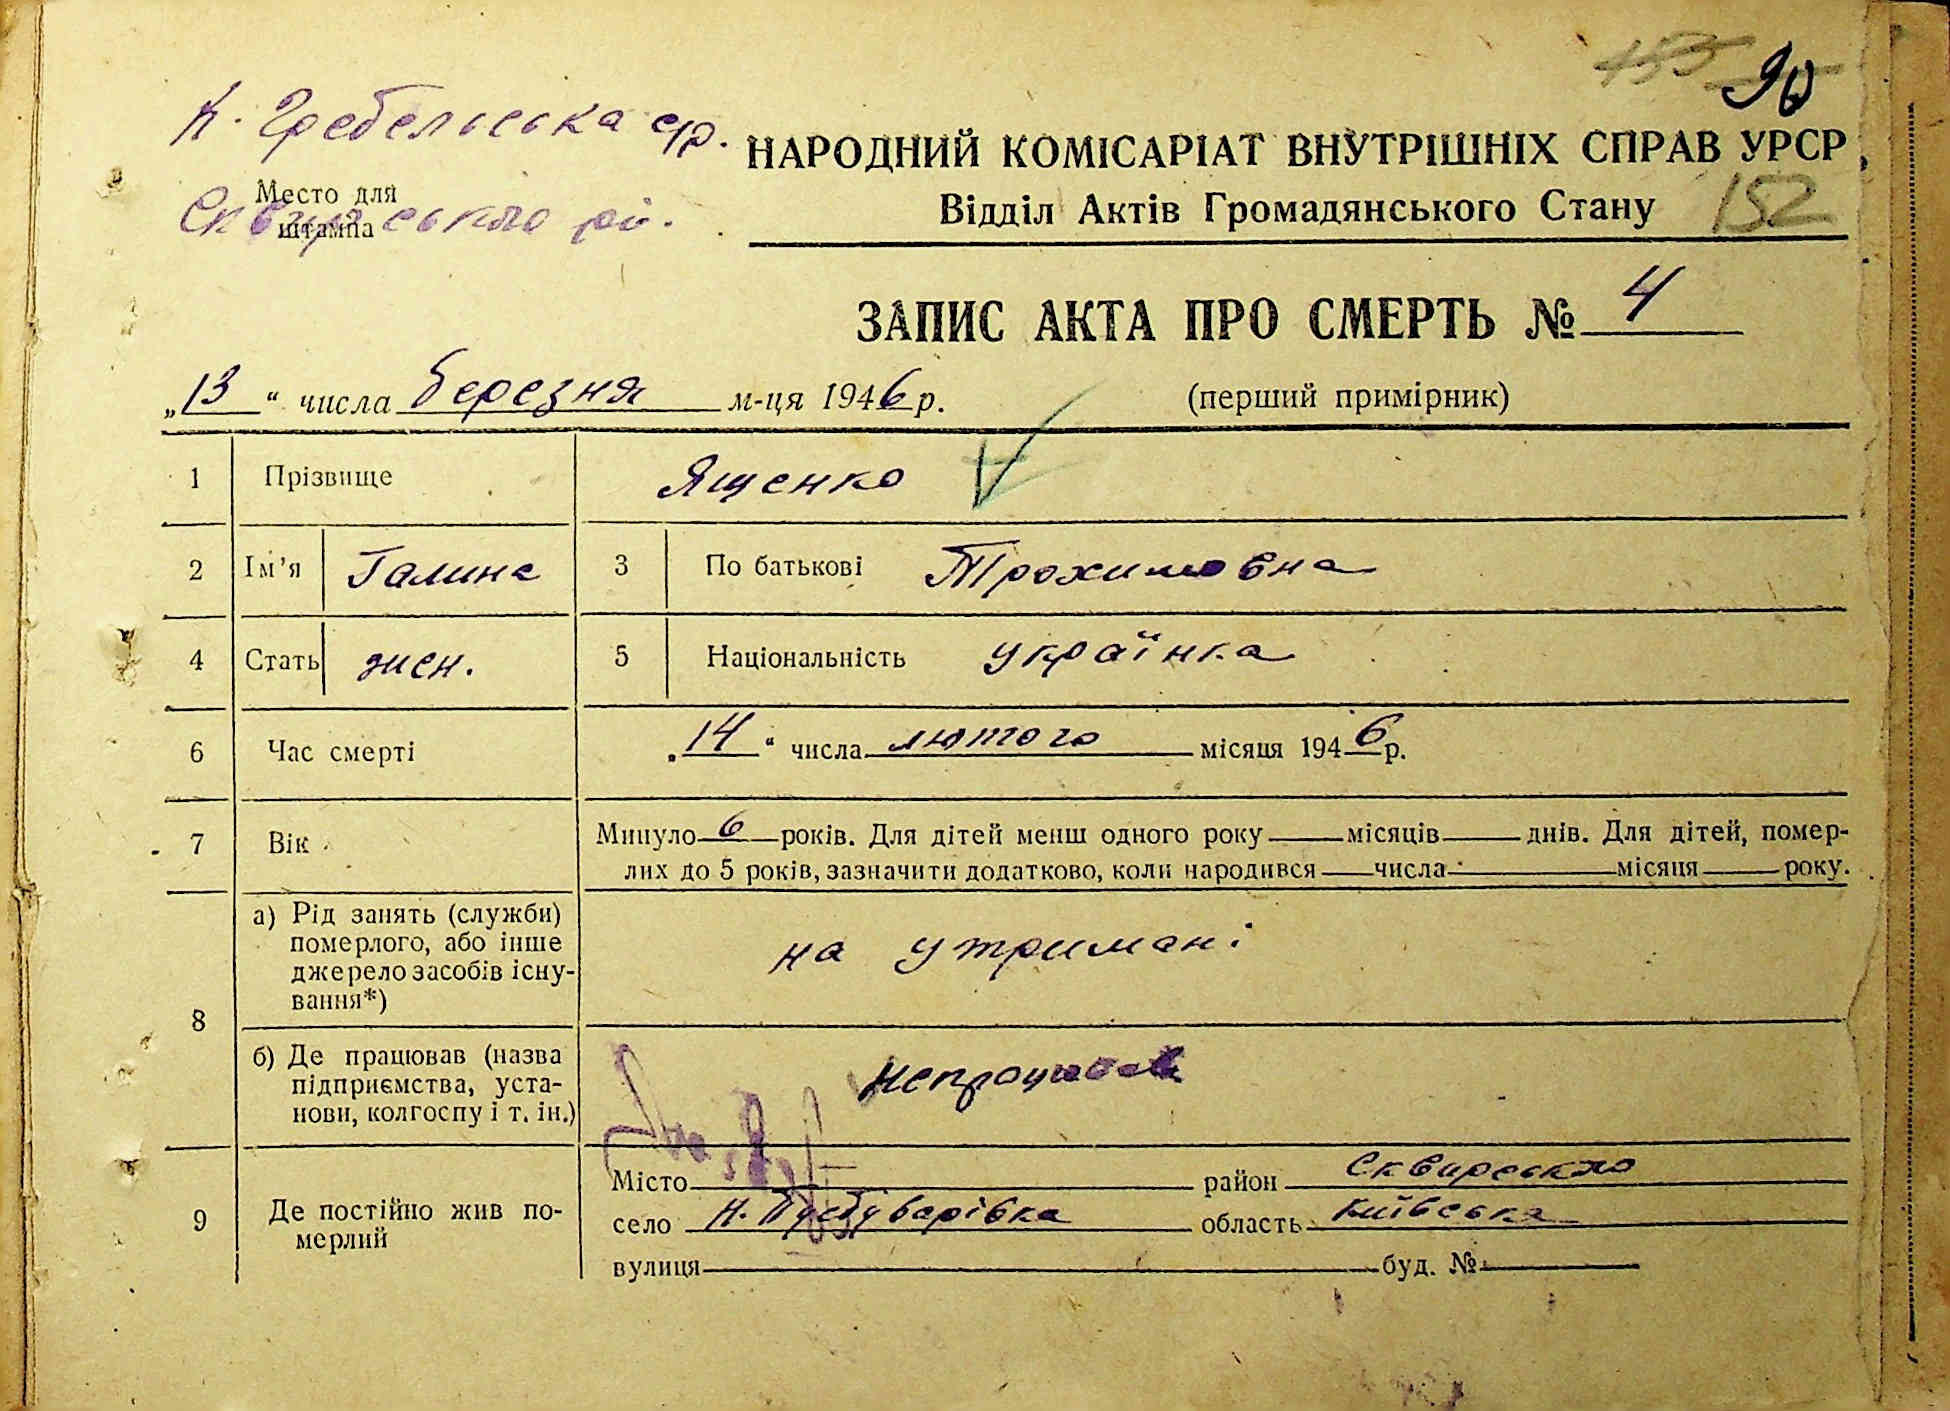 К. Гребельська с/р.
Сквирського р-н.
Место для
штампа
155 90
НАРОДНИЙ КОМІСАРІАТ ВНУТРІШНІХ СПРАВ УРСР
Відділ Актів Громадянського Стану
152
ЗАПИС АКТА ПРО СМЕРТЬ № 4
„13“ числа березня м-ця 1946 р.
(перший примірник)
1 Прізвище Ященко
2 Ім’я Галина 3 По батькові Трохимовна
4 Стать жен. 5 Національність українка
6 Час смерті „14“ числа лютого місяця 1946 р.
7 Вік Минуло 6 років. Для дітей менш одного року місяців днів. Для дітей, помер-
лих до 5 років, зазначити додатково, коли народився числа місяця року.
8 а) Рід занять (служби)
померлого, або інше
джерело засобів існу-
вання*)
на утримані
б) Де працював (назва
підприємства, уста-
нови, колгоспу і т. ін.)
непрацював
9 Де постійно жив по-
мерлий
Місто район Сквирського
село область Київська
вулиця буд. №